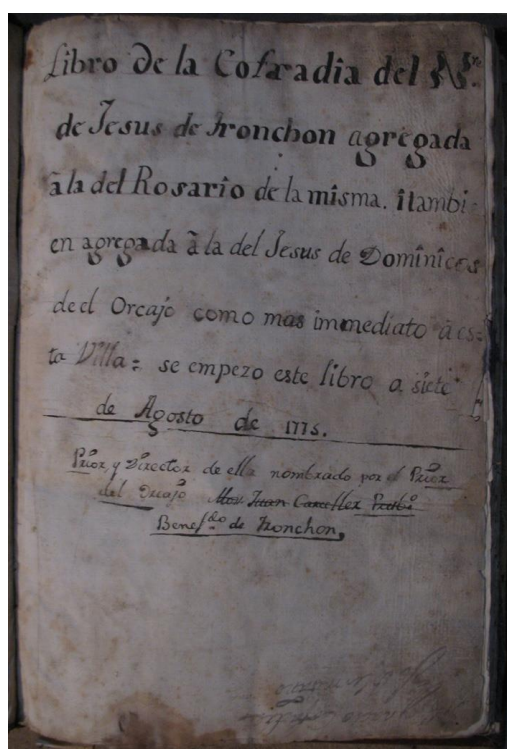 Libro de la Cofradia del Nre
de Jesus de Tronchon agregada
à la del Rosario de la misma. i tambi-
en agregada à la del Jesus de Dominicos
de el Orcajo como mas immediato à es-
ta Villa: se empezo este libro a siete
de Agosto de 1775.
Prior, y Director de ella nombrado por el Prior
del Orcajo Mos. Juan Carceller Prebo
Benefdo de Tronchon,